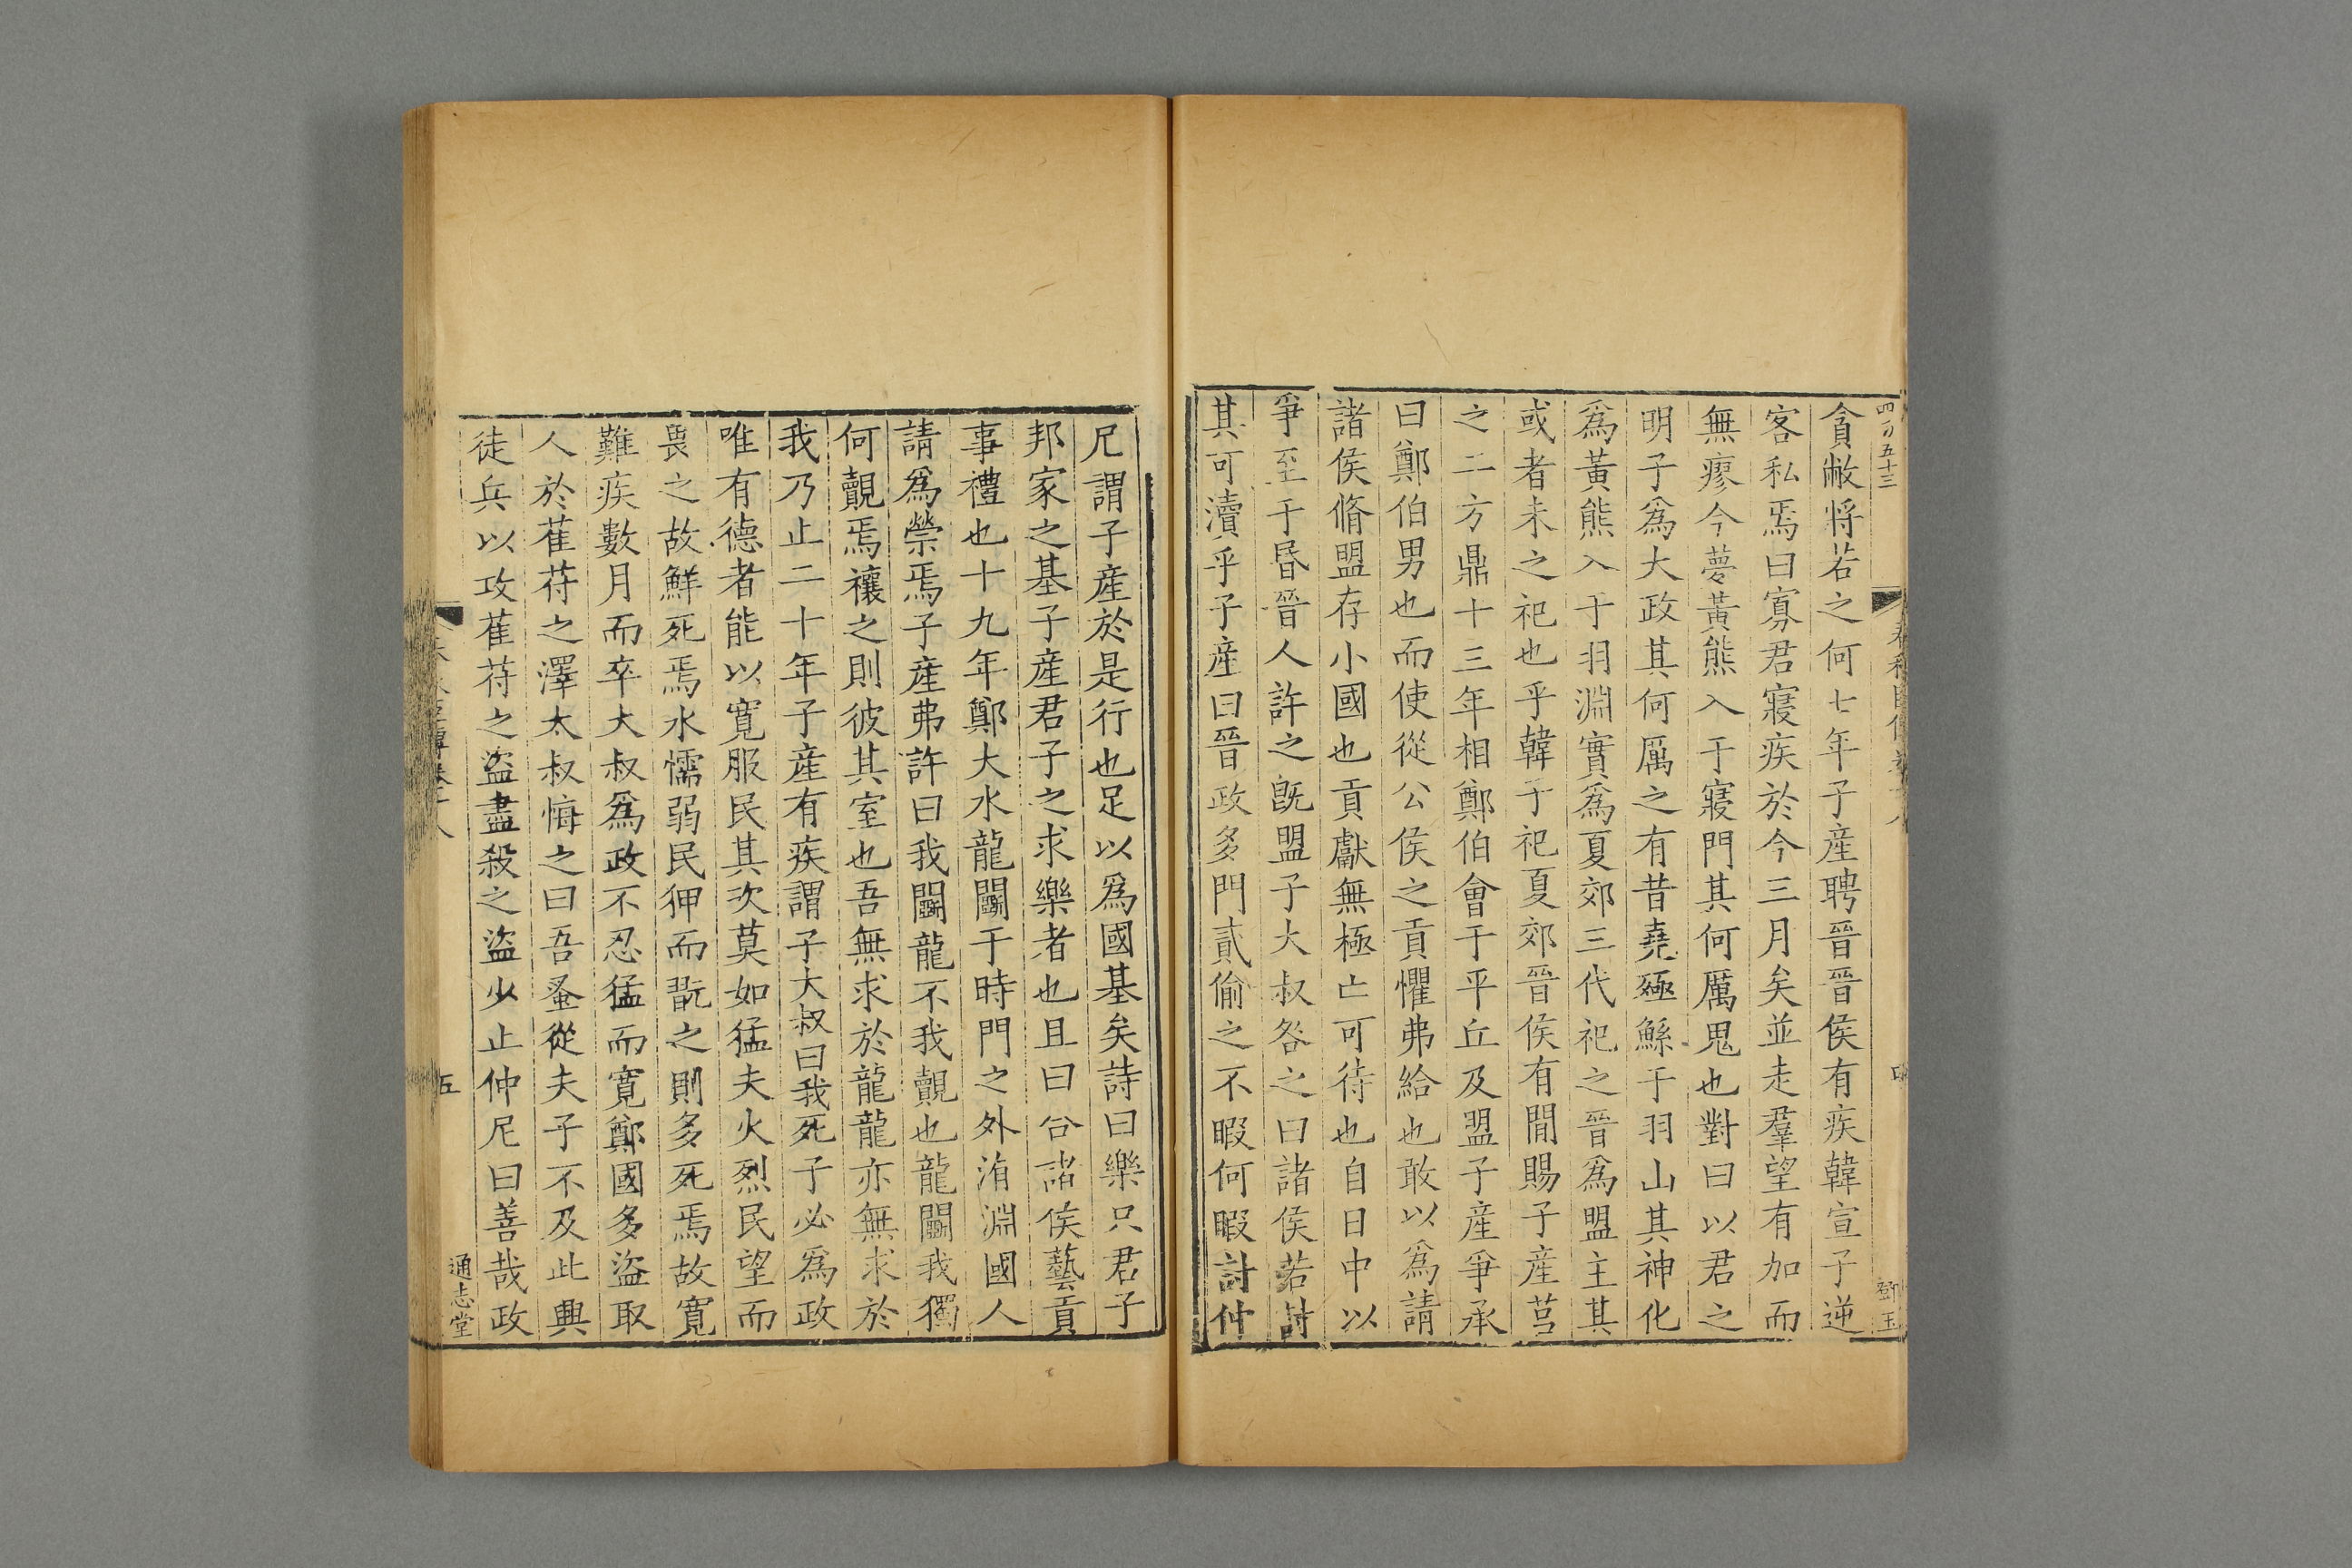 四百五十三
貪敝將若之何七年子產聘晉晉侯有疾韓宣子逆
客私焉曰寡君寢疾於今三月矣並走羣望有加而
無瘳今夢黃熊入于寢門其何厲鬼也對曰以君之
明子爲大政其何厲之有昔堯殛鯀于羽山其神化
爲黃熊入于羽淵實爲夏郊三代祀之晉爲盟主其
或者未之祀也乎韓子祀夏郊晉侯有間賜子產莒
之二方鼎十三年相鄭伯會于平丘及盟子產爭承
曰鄭伯男也而使從公侯之貢懼弗給也敢以爲請
諸侯脩盟存小國也貢獻無極亡可待也自日中以
爭至于昏晉人許之旣盟子大叔咎之曰諸侯若討
其可瀆乎子產曰晉政多門貳偷之不暇何暇討仲
尼謂子產於是行也足以爲國基矣詩曰樂只君子
邦家之基子產君子之求樂者也且曰合諸侯藝貢
事禮也十九年鄭大水龍鬭于時門之外洧淵國人
請爲禜焉子產弗許曰我鬭龍不我覿也龍鬭我獨
何覿焉禳之則彼其室也吾無求於龍龍亦無求於
我乃止二十年子產有疾謂子大叔曰我死子必爲政
唯有德者能以寬服民其次莫如猛夫火烈民望而
畏之故鮮死焉水懦弱民狎而翫之則多死焉故寬
難疾數月而卒大叔爲政不忍猛而寬鄭國多盜取
人於萑苻之澤太叔悔之曰吾蚤從夫子不及此興
徒兵以攻萑苻之盜盡殺之盜少止仲尼曰善哉政
五
通志堂